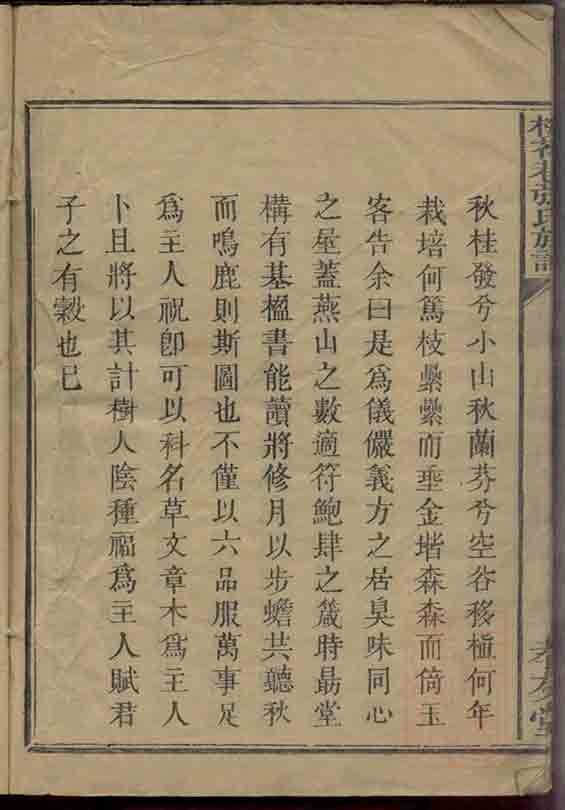 秋桂發兮小山秋蘭芬兮空谷移植何年
栽培何篤枝纍纍而垂金堦森森而倚玉
客告余曰是爲儀儼義方之居臭味同心
之屋蓋燕山之數適符鮑肆之箴時勗堂
構有基楹書能讀將修月以步蟾共聽秋
而鳴鹿則斯圖也不僅以六品服萬事足
爲主人祝卽可以科名草文章木爲主人
卜且將以其計樹人陰種福爲主人賦君
子之有糓也已
張氏族譜
孝友堂